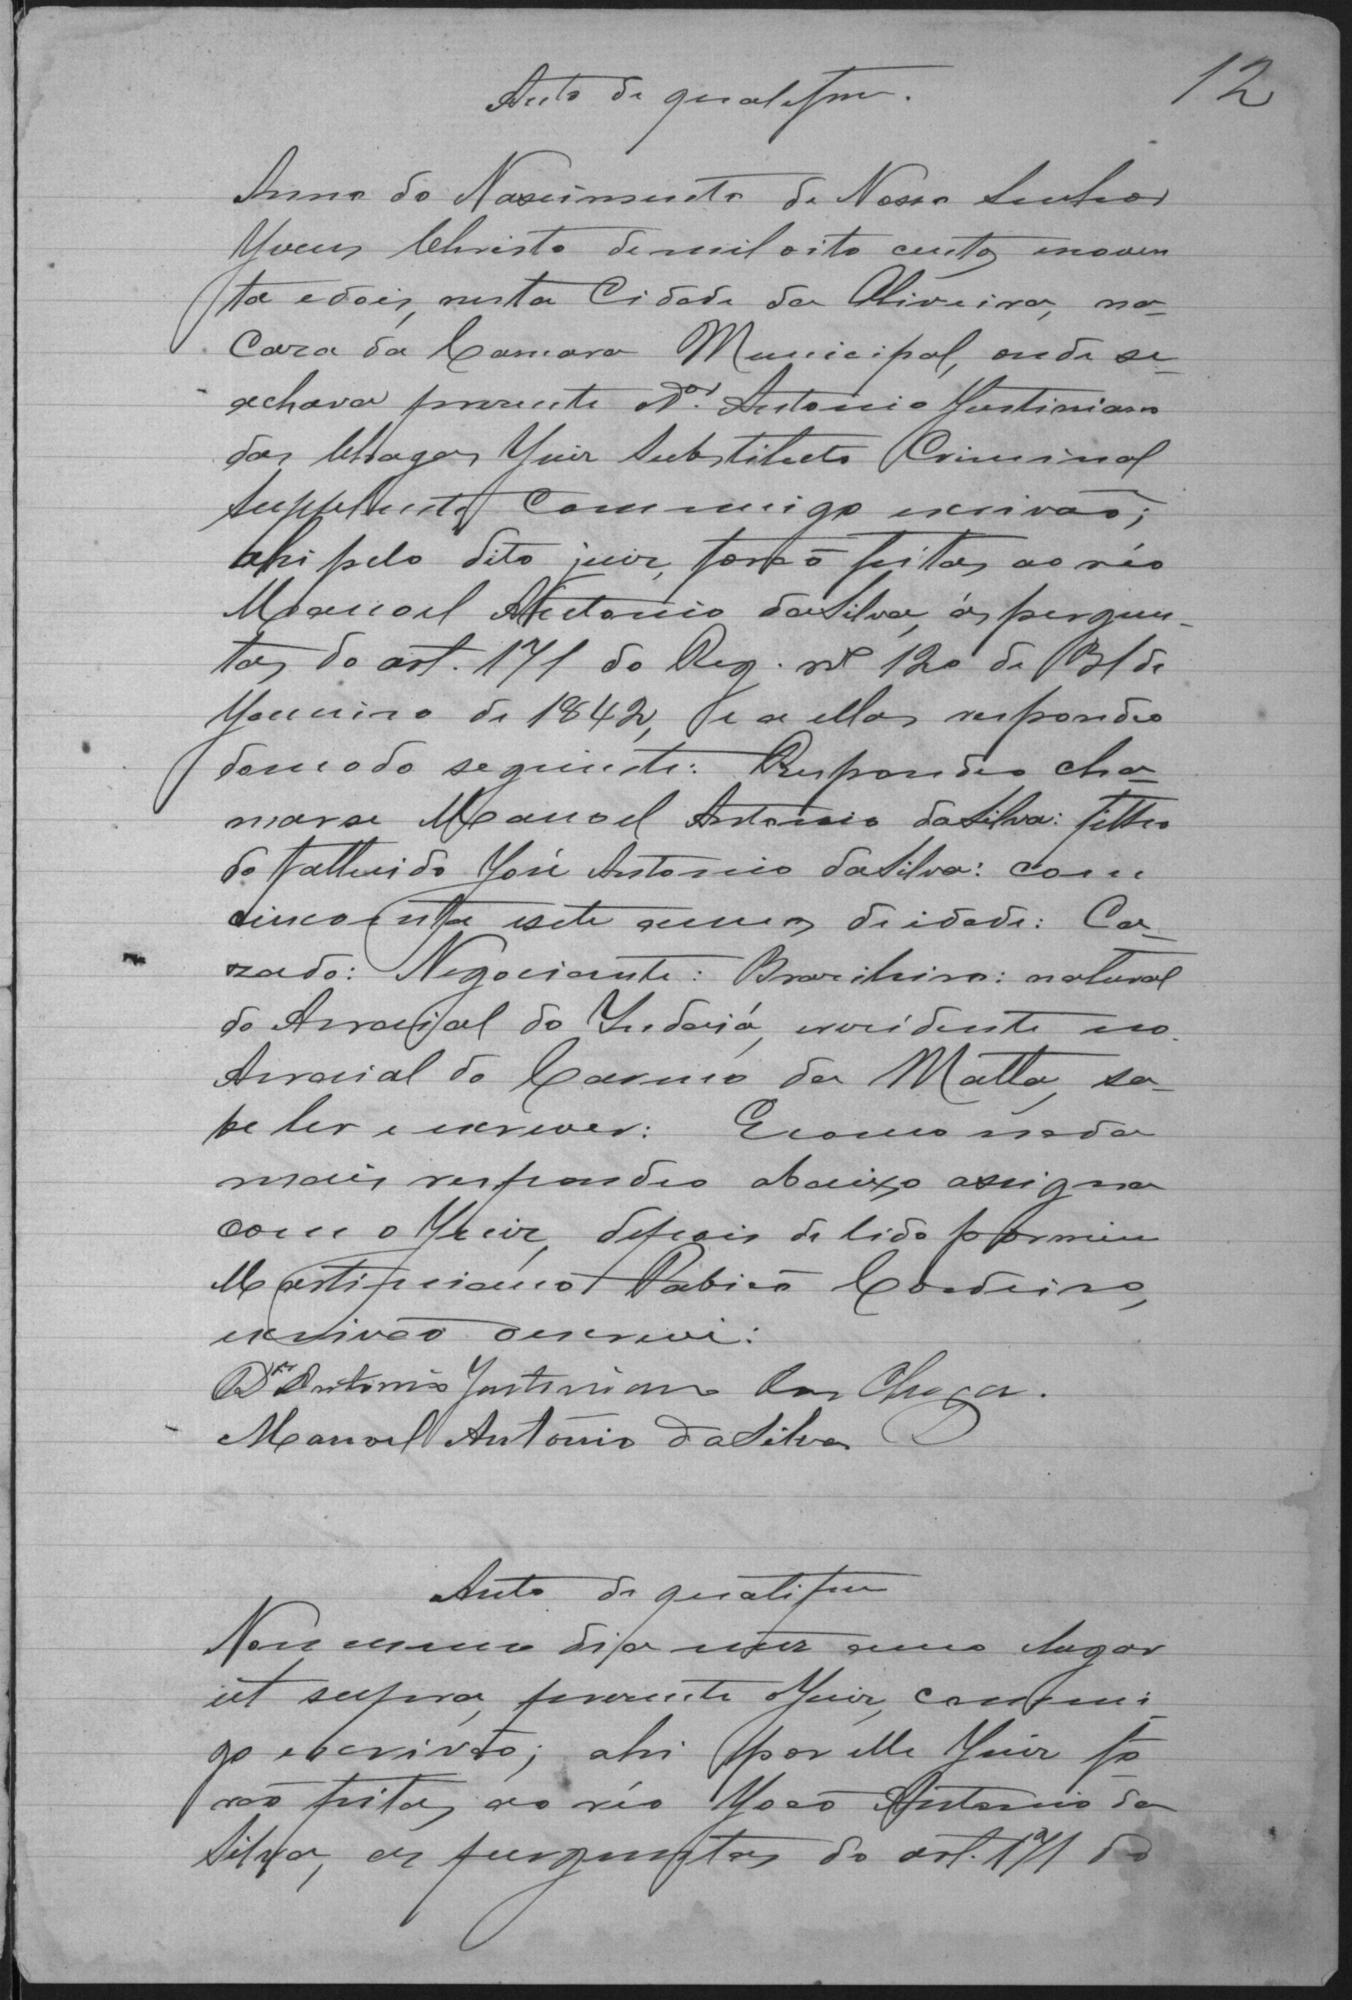 12
Auto de qualifm.
Anno do Nascimento de Nosso Senhor
Jesus Christo de mil oito centos enoven
ta edois, nesta Cidade da Oliveira, na
Caza da Camara Municipal, onde se
achava prezente o Dor. Antonio Justiniano
das Chagas Juiz Substituto Criminal
Supplente Commigo escrivão;
ahi pelo dito juiz, forão feitas ao réo
Manoel Antonio daSilva, ás pergun-
tas do art. 171 do Reg. nº 120 de 31 de
Janeiro de 1842, e a ellas respondeo
domodo seguinte: Respondeo cha-
marse Manoel Antonio daSilva: filho
do fallecido José Antonio daSilva: com
cincoenta esete annos de idade: Ca-
zado: Negociante: Brazileiro: natural
do Arraial do Indaiá, erezidente no
Arraial do Carmo da Matta, sa-
be ler e escrever: Ecomo nada
mais respondeo abaixo assigna
com o Juiz, depois de lido pormim
Martiniano Cordeiro,
escrivão oescrevi:
Dr Antonio Justiniano das Chagas.
Manoel Antonio daSilva
Auto de qualifm
Nomesmo dia mez anno elugar
ut supra, prezente oJuiz, commi-
go escrivão; ahi por elle Juiz fo-
rão feitas ao réo João Antonio da
Silva, as perguntas do art. 171 do